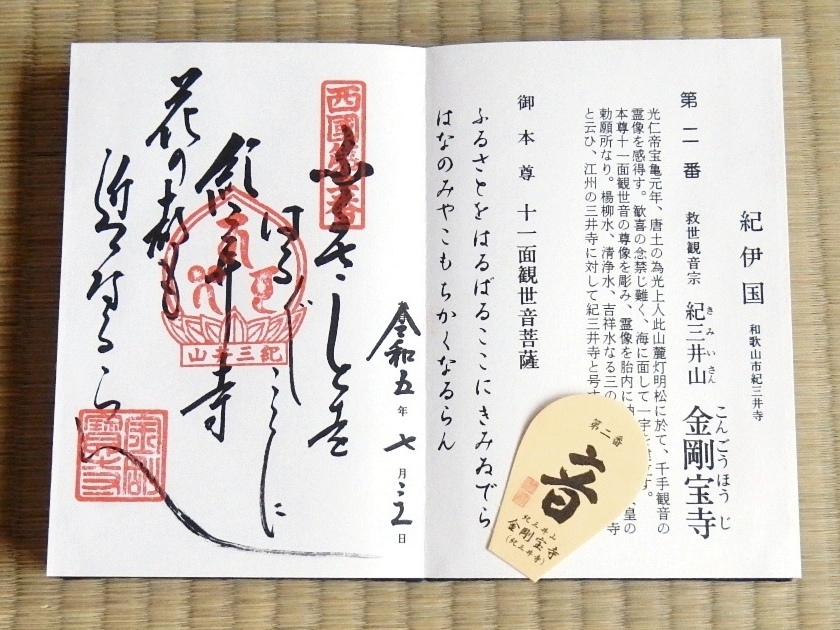 紀伊国 和歌山市紀三井寺
第二番 救世観音宗 紀三井山 金剛宝寺
きみいさん こんごうほうじ
光仁帝宝亀元年、唐土の為光上人此山麓灯明松に於て、千手観音の
霊像を感得す。歓喜の念禁じ難く、海に面して一宇す。
本尊十一面観世音の尊像を彫み、霊像を胎内に皇の
勅願所なり。楊柳水、清浄水、吉祥水なる三の寺
と云ひ、江州の三井寺に対して紀三井寺と号す
御本尊 十一面観世音菩薩
ふるさとをはるばるここにきみゐでら
はなのみやこもちかくなるらん
第二番
音
紀三井山
金剛宝寺
(紀三井寺)
令和五年七月日
西國第二番
はるばるここに
紀三井寺
紀三井山
花の都も
近くなるらん
金剛寳寺